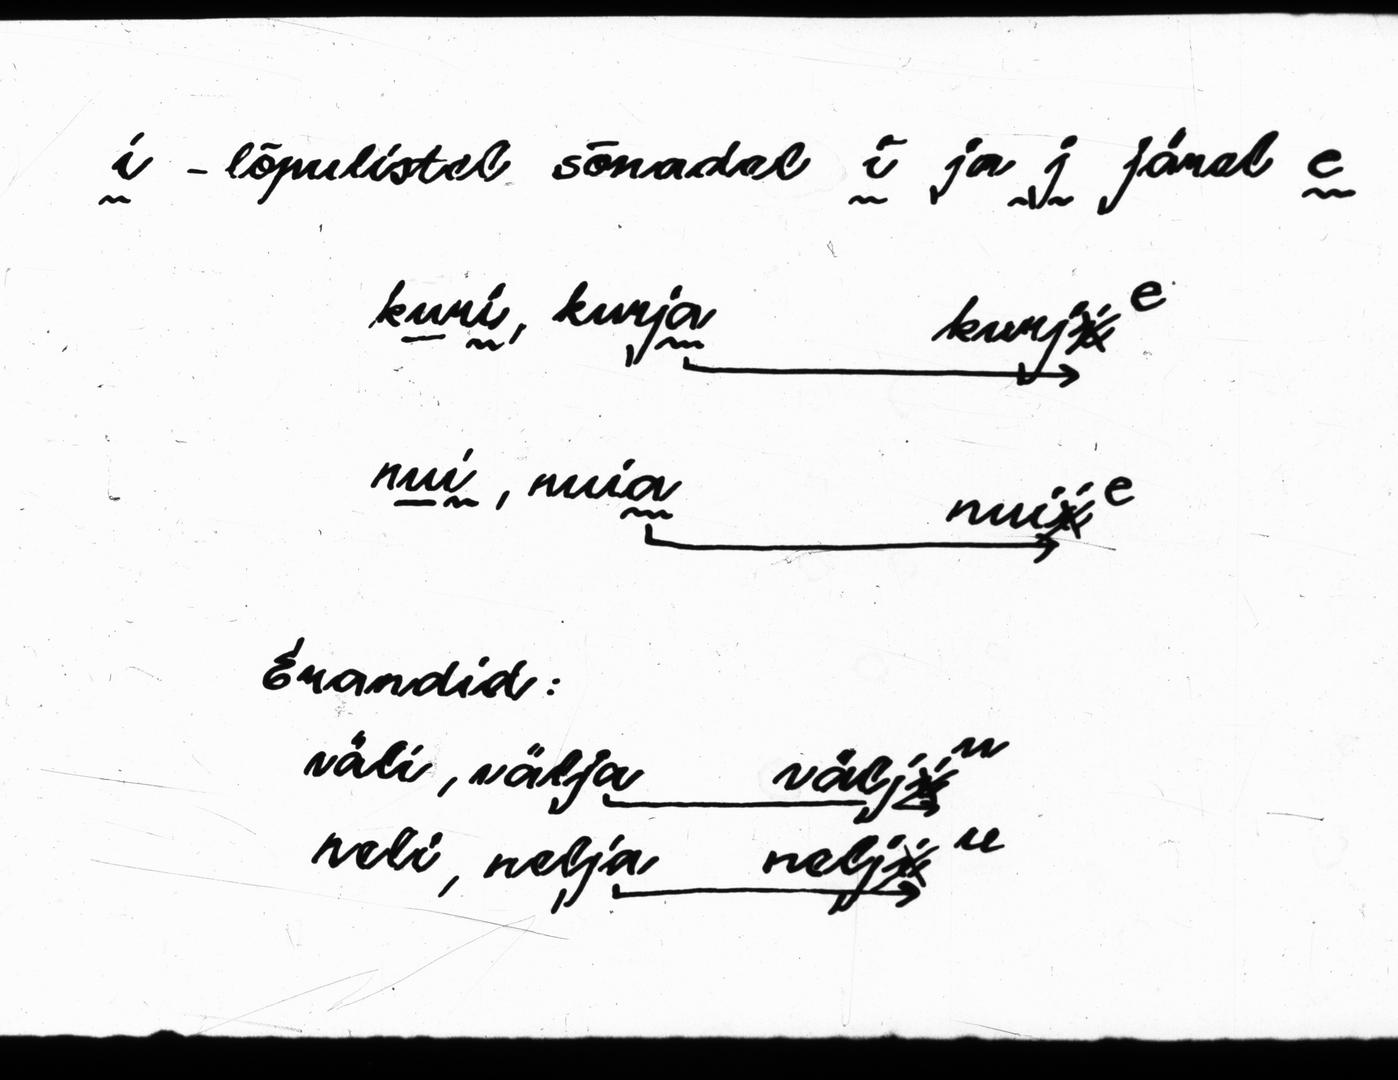 i - lõpulistel sõnadel i ja j järel e
kuri, kurja kurji e
nui, nuia nuii e
Erandid:
väli, välja välji u
neli, nelja nelji u